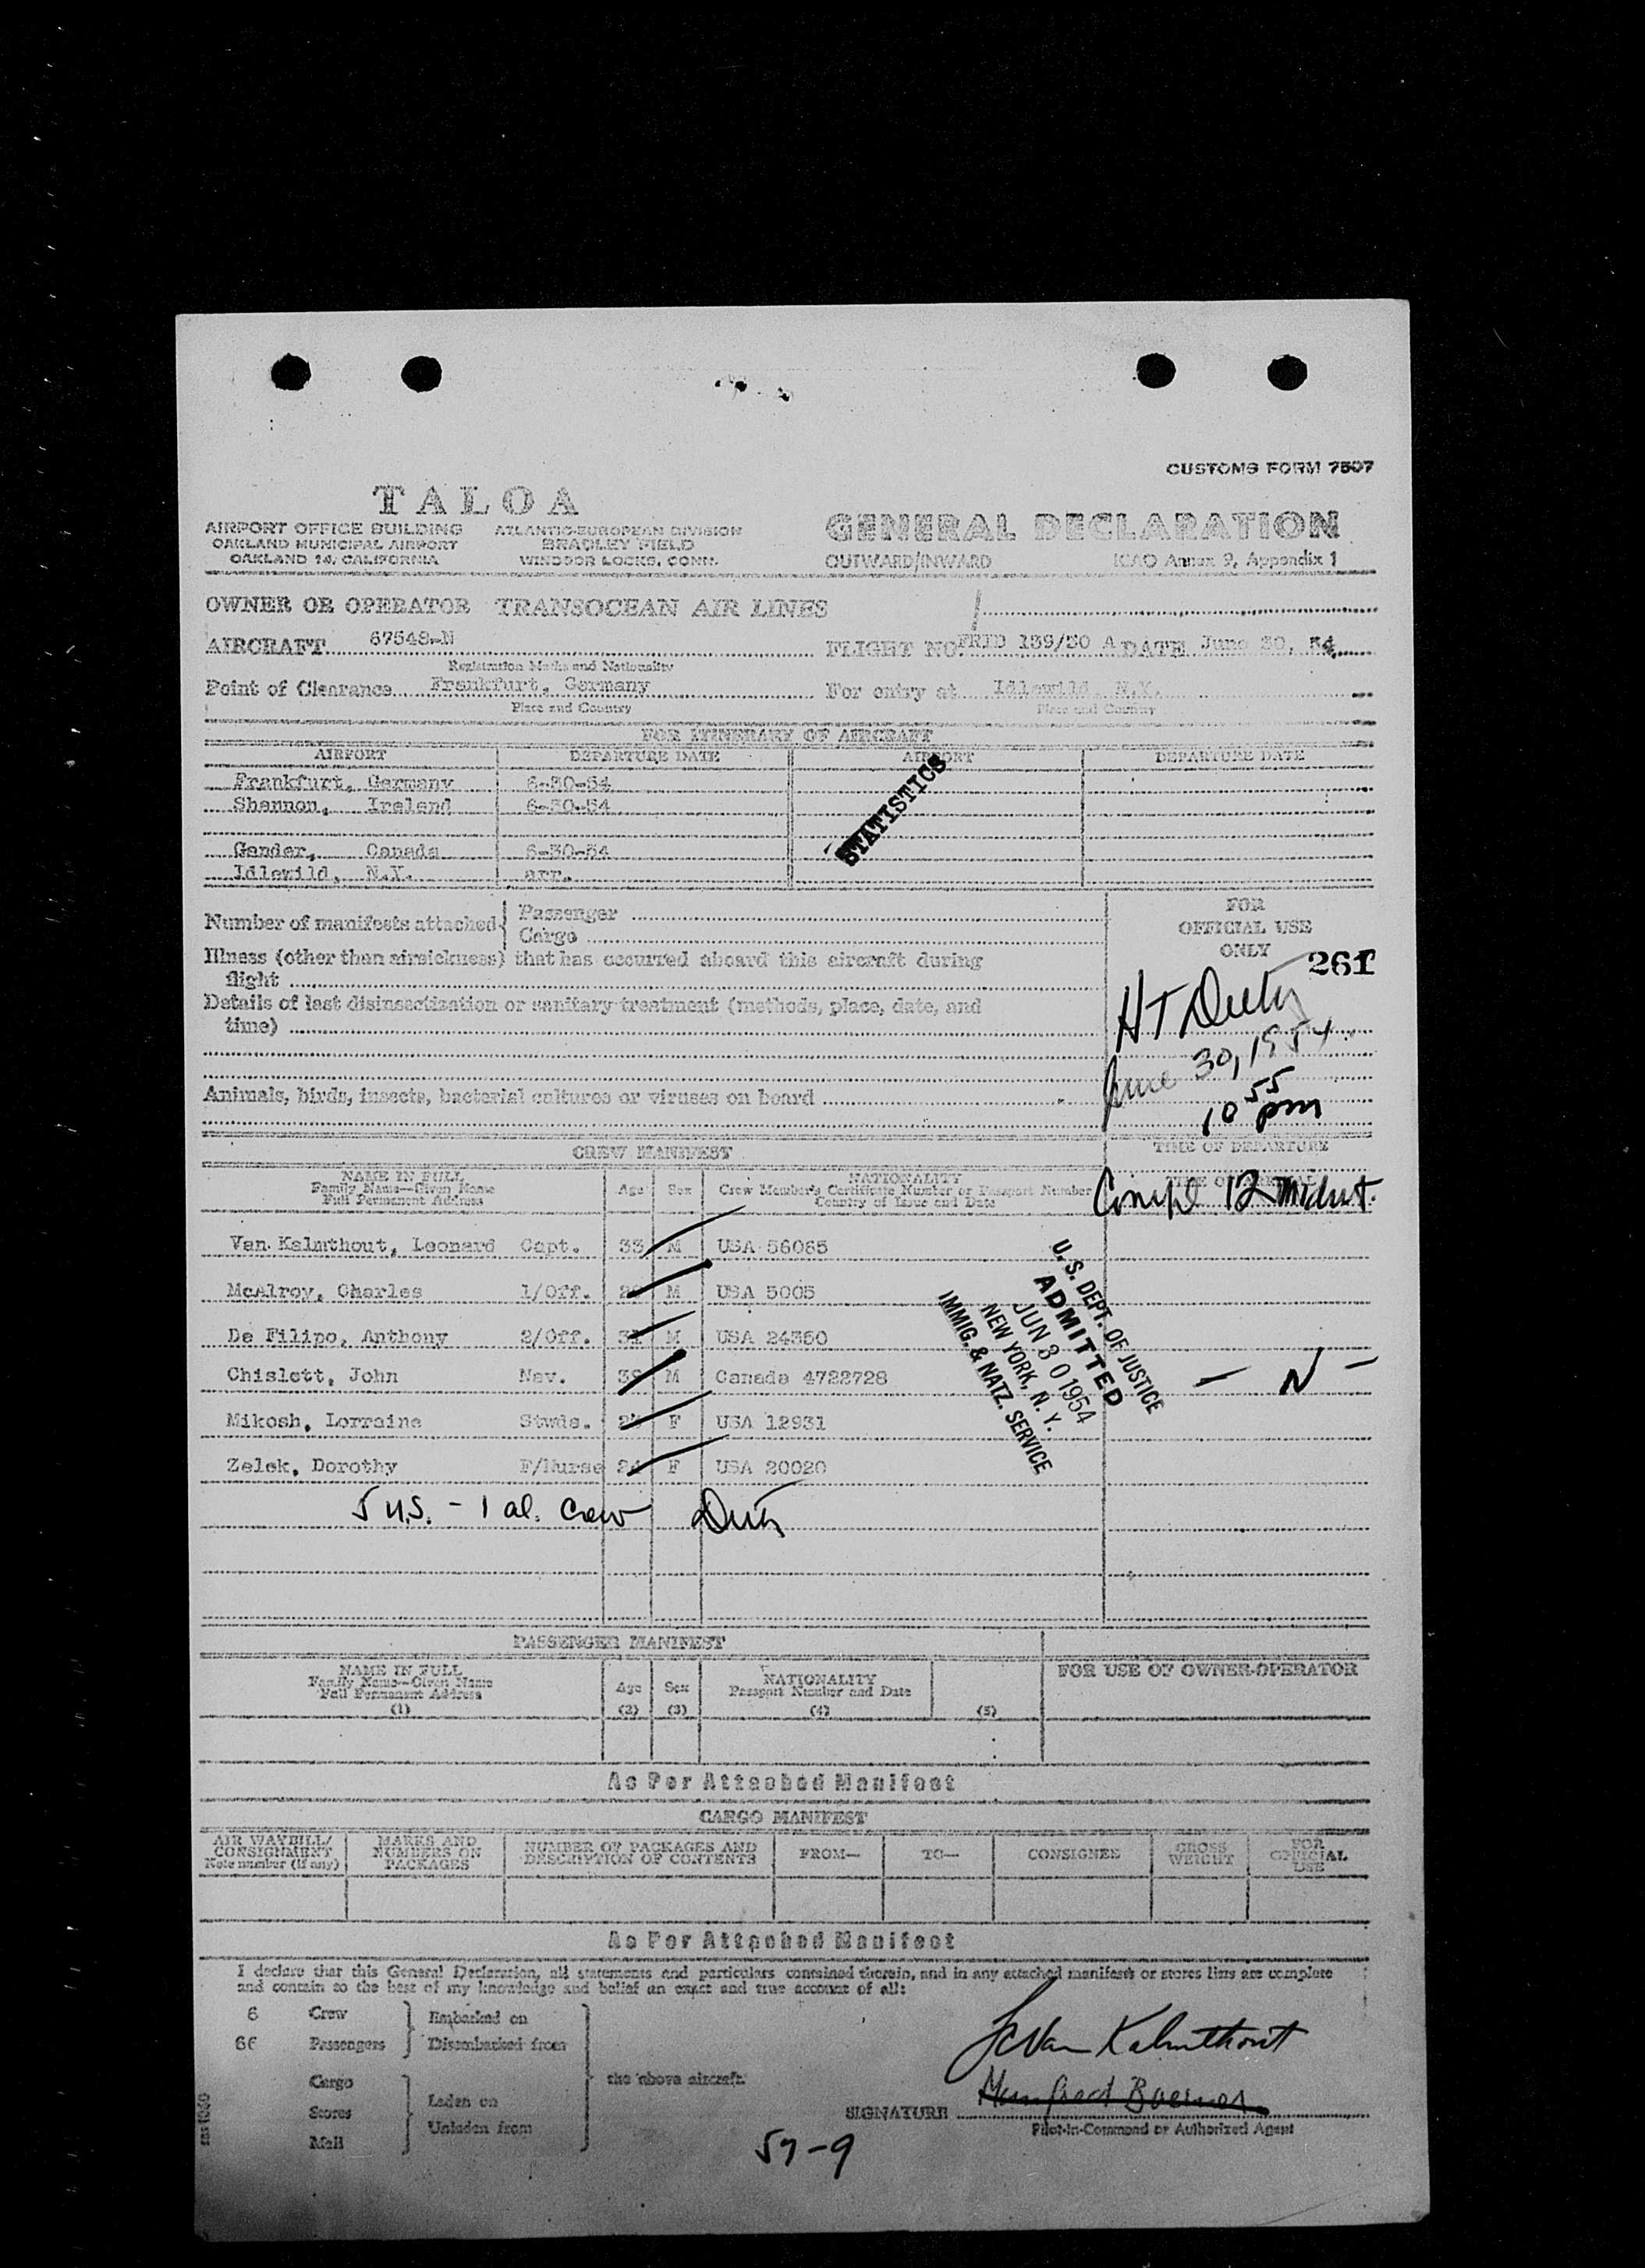 CUSTOMS FORM 7507
TALOA
AIRPORT OFFICE BUILDING
OAKLAND MUNICIPAL AIRPORT
OAKLAND 14, CALIFORNIA
ATLANTIC-EUROPEAN DIVISION
BRADLEY FIELD
WINDSOR LOCKS, CONN.
GENERAL DECLARATION
OUTWARD/INWARD ICAO Annex 9, Appendix 1
OWNER OR OPERATOR TRANSOCEAN AIR LINES
AIRCRAFT 67548-N FLIGHT NO. FRID 139/30 A DATE June 30, 54
Registration Marks and Nationality
Point of Clearance Frankfurt, Germany For entry at Idlewild, N.Y.
Place and Country Place and Country
FOR ITINERARY OF AIRCRAFT
AIRPORT DEPARTURE DATE AIRPORT DEPARTURE DATE
Frankfurt, Germany 6-30-54
Shannon, Ireland 6-30-54
Gander, Canada 6-30-54
Idlewild, N.Y. arr.
STATISTICS
Number of manifests attached Passenger
Cargo
FOR
OFFICIAL USE
ONLY
261
Illness (other than airsickness) that has occurred aboard this aircraft during
flight
Details of last disinsectization or sanitary treatment (methods, place, date, and
time)
June 30, 1954
Animals, birds, insects, bacterial cultures or viruses on board
10 55 pm
CREW MANIFEST TIME OF DEPARTURE
NAME IN FULL
Family Name—Given Name
Full Permanent Address
Age Sex
NATIONALITY
Crew Member's Certificate Number or Passport Number
Country of Issue and Date
Compl 12 Midnt.
Van Kalmthout, Leonard Capt. 33 M USA 56065
McAlroy, Charles 1/Off. M USA 5005
De Filipo, Anthony 2/Off. 31 M USA 24360
Chislett, John Nav. M Canada 4722728 - N -
Mikosh, Lorraine Stwds. F USA 12931
Zelek, Dorothy F/Nurse 24 F USA 20020
U.S. DEPT. OF JUSTICE
ADMITTED
JUN 30 1954
NEW YORK, N. Y.
IMMIG. & NATZ. SERVICE
5 U.S. - 1 al. Crew
PASSENGER MANIFEST
NAME IN FULL
Family Name—Given Name
Full Permanent Address
(1)
Age
(2)
Sex
(3)
NATIONALITY
Passport Number and Date
(4) (5)
FOR USE OF OWNER-OPERATOR
As Per Attached Manifest
CARGO MANIFEST
AIR WAYBILL/
CONSIGNMENT
Note number (if any)
MARKS AND
NUMBERS ON
PACKAGES
NUMBER OF PACKAGES AND
DESCRIPTION OF CONTENTS
FROM— TO— CONSIGNEE
GROSS
WEIGHT
FOR
OFFICIAL
USE
As Per Attached Manifest
I declare that this General Declaration, all statements and particulars contained therein, and in any attached manifests or stores lists are complete
and contain to the best of my knowledge and belief an exact and true account of all:
6 Crew Embarked on
66 Passengers Disembarked from
Cargo
Stores Laden on
Mail Unladen from
the above aircraft.
Van Kalmthout
Manfred Boerner
SIGNATURE
Pilot-in-Command or Authorized Agent
57-9